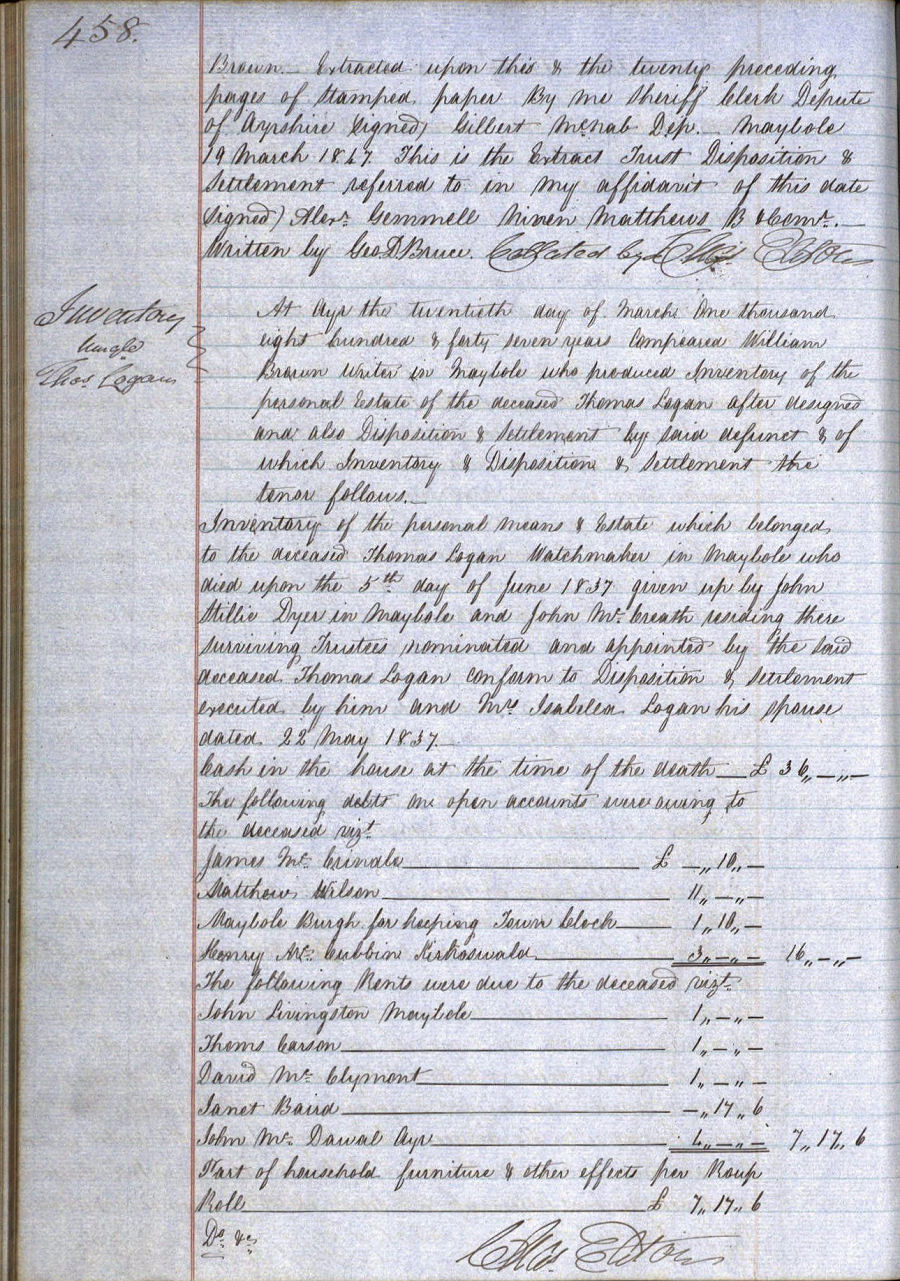 458.
Brown Extracted upon this & the twenty preceding
pages of stamped paper By me Sheriff Clerk Depute
of Ayrshire (signed) Gilbert McNab Dep. Maybole
19 March 1847. This is the Extract Trust Disposition &
Settlement referred to in my affidavit of this date
(signed) Alexr. Gemmell Niven Matthews B &Comr.
Written by Geo. D Bruce. Collected by
Inventory
Thos Logan
At Ayr the twentieth day of March One thousand
eight hundred & forty seven years Compeared William
Brown Writer in Maybole who produced Inventory of the
personal Estate of the deceased Thomas Logan after designed
and also Disposition & Settlement by said defunct & of
which Inventory & Disposition & Settlement the
tenor follows.
Inventory of the personal means & Estate which belonged
to the deceased Thomas Logan Watchmaker in Maybole who
died upon the 5th day of June 1837 given up by John
Millie Dyer in Maybole and John Mc.Creath residing there
surviving Trustees nominated and appointed by the said
deceased Thomas Logan conform to Disposition & Settlement
executed by him and Mrs Isabella Logan his spouse
dated 22 May 1837
Cash in the house at the time of the death £ 36,,—,,—
The following debts on open accounts were owing to
the deceased vizt.
James Mc. Crindle £ —,,10,,—
Matthew Wilson 11,,—,,—
Maybole Burgh for keeping Town Clock 1,,10,,—
Henry Mc. Cubbin Kirkoswald 3,,—,,— 16,,—,,—
The following Rents were due to the deceased vizt.
John Livingston Maybole 1,,—,,—
Thoms Carson 1,,—,,—
David Mc. Clymont 1,,—,,—
Janet Baird —,,17,,6
John Mc. Dowal Ayr 4,,—,,— 7,,17,,6
Part of household furniture & other effects per Roup
Roll £ 7,,17,,6
Do. &c